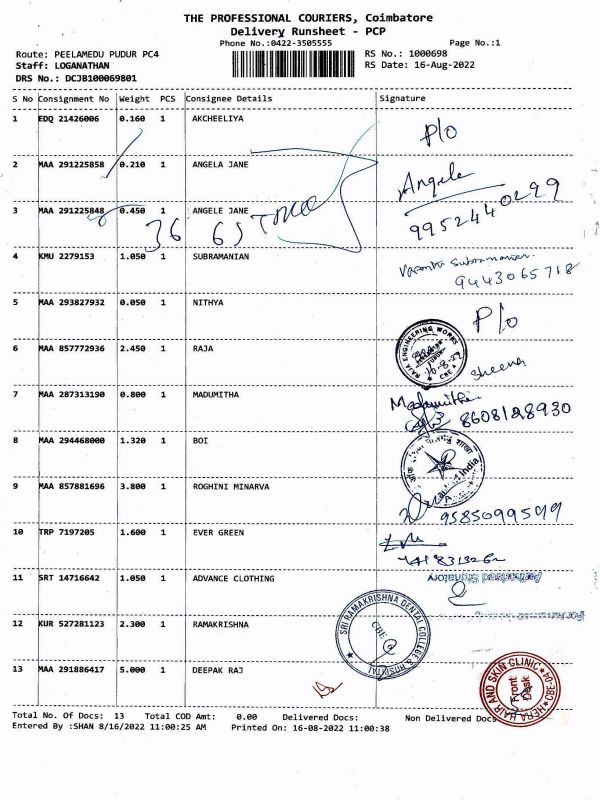 THE PROFESSIONAL COURIERS, Coimbatore
Delivery Runsheet - PCP
Phone No.:0422-3505555 Page No.:1
Route: PEELAMEDU PUDUR PC4 RS No.: 1000698
Staff: LOGANATHAN RS Date: 16-Aug-2022
DRS No.: DCJB100069801
S No Consignment No Weight PCS Consignee Details Signature
1 EDQ 21426006 0.160 1 AKCHEELIYA P/o
2 MAA 291225858 0.210 1 ANGELA JANE Angele
9952440299
3 MAA 291225848 0.450 1 ANGELE JANE
36 65
4 KMU 2279153 1.050 1 SUBRAMANIAN Vasantha Subramanian.
9443065718
5 MAA 293827932 0.050 1 NITHYA P/o
6 MAA 857772936 2.450 1 RAJA RAJA ENGINEERING WORKS CBE Sheena
7 MAA 287313190 0.800 1 MADUMITHA Madumitha
8608128930
8 MAA 294468000 1.320 1 BOI
9 MAA 857881696 3.800 1 ROGHINI MINARVA
9585099599
10 TRP 7197205 1.600 1 EVER GREEN
11 SRT 14716642 1.050 1 ADVANCE CLOTHING Authorised Signatory
12 KUR 527281123 2.300 1 RAMAKRISHNA SRI RAMAKRISHNA DENTAL COLLEGE & HOSPITAL CBE
13 MAA 291886417 5.000 1 DEEPAK RAJ HAIR AND SKIN CLINIC Front Desk
Total No. Of Docs: 13 Total COD Amt: 0.00 Delivered Docs: Non Delivered Docs
Entered By :SHAN 8/16/2022 11:00:25 AM Printed On: 16-08-2022 11:00:38